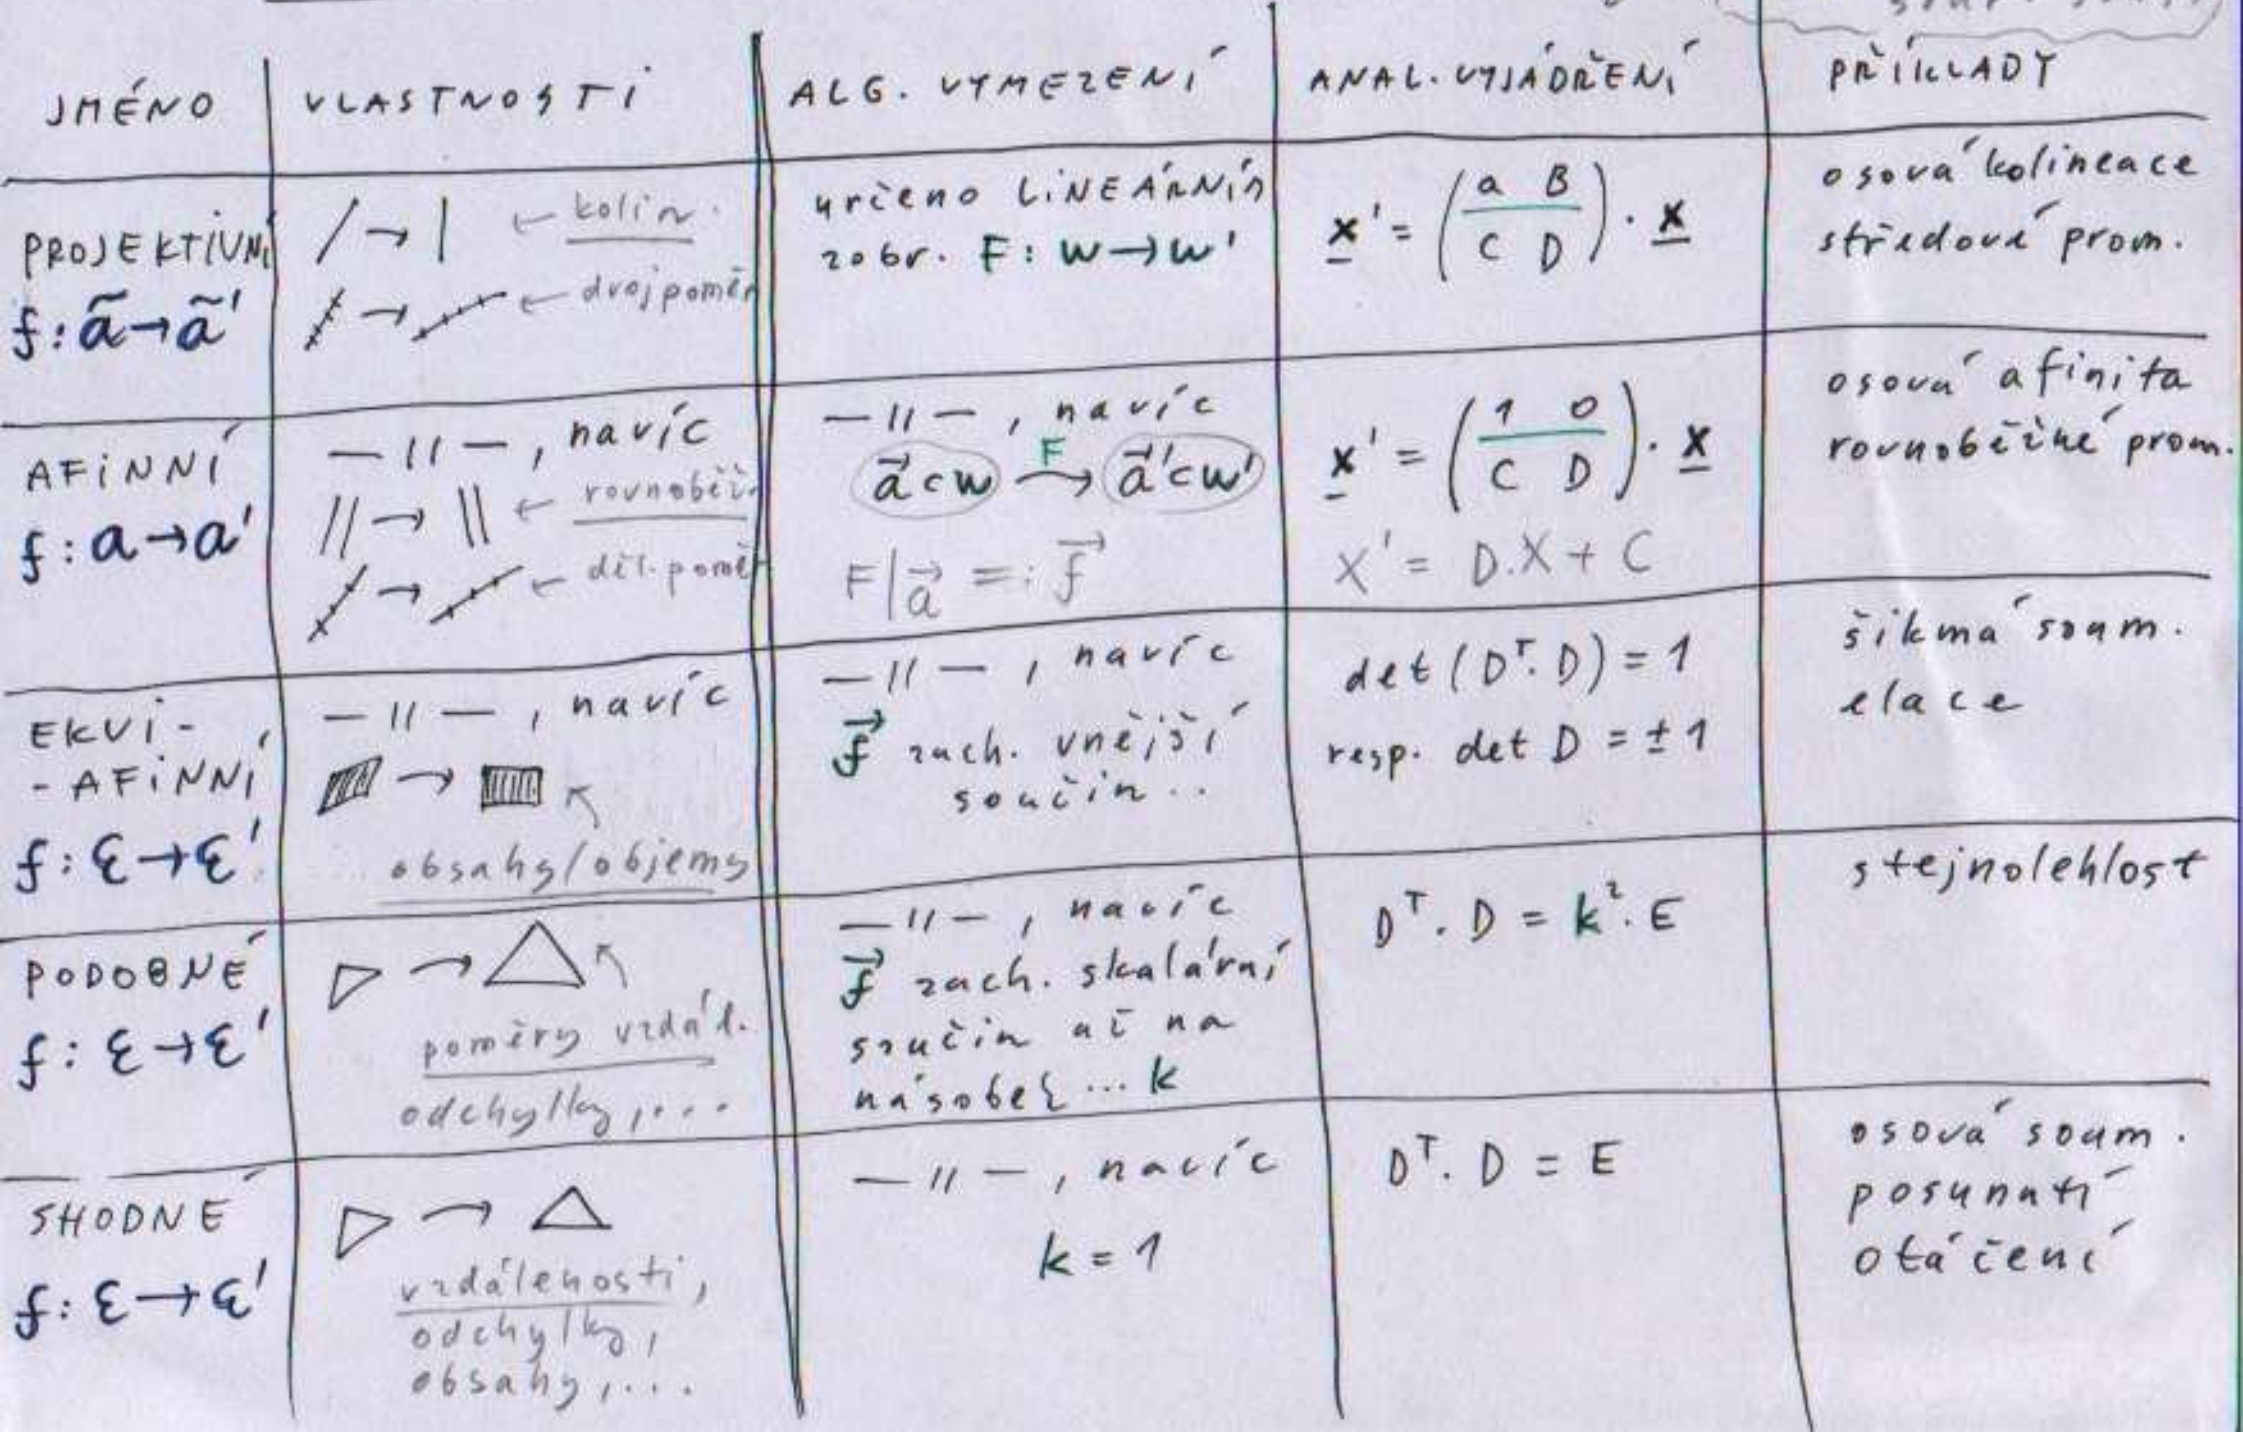 JMÉNO
VLASTNOSTI
ALG. VYMEZENÍ
ANAL. VYJÁDŘENÍ
PŘÍKLADY
PROJEKTIVNÍ
f: ã → ã'
/ → | ← kolin.
← dvojpoměr
určeno LINEÁRNÍM
zobr. F: W → W'
x' = (a B / C D) · x
osová kolineace
středové prom.
AFINNÍ
f: a → a'
—||—, navíc
|| → \\ ← rovnoběž.
← děl. poměr
—||—, navíc
a⃗ ⊂ W F→ a⃗' ⊂ W'
F|a⃗ =: f⃗
x' = (1 0 / C D) · x
X' = D.X + C
osová afinita
rovnoběžné prom.
EKVI-
- AFINNÍ
f: ℇ → ℇ'
—||—, navíc
obsahy/objemy
—||—, navíc
f⃗ zach. vnější
součin..
det(Dᵀ. D) = 1
resp. det D = ± 1
šikmá soum.
elace
PODOBNÉ
f: ℇ → ℇ'
poměry vzdál.
odchylky,...
—||—, navíc
f⃗ zach. skalární
součin až na
násobek ... k
Dᵀ. D = k². E
stejnolehlost
SHODNÉ
f: ℇ → ℇ'
vzdálenosti,
odchylky,
obsahy,...
—||—, navíc
k = 1
Dᵀ. D = E
osová soum.
posunutí
otáčení